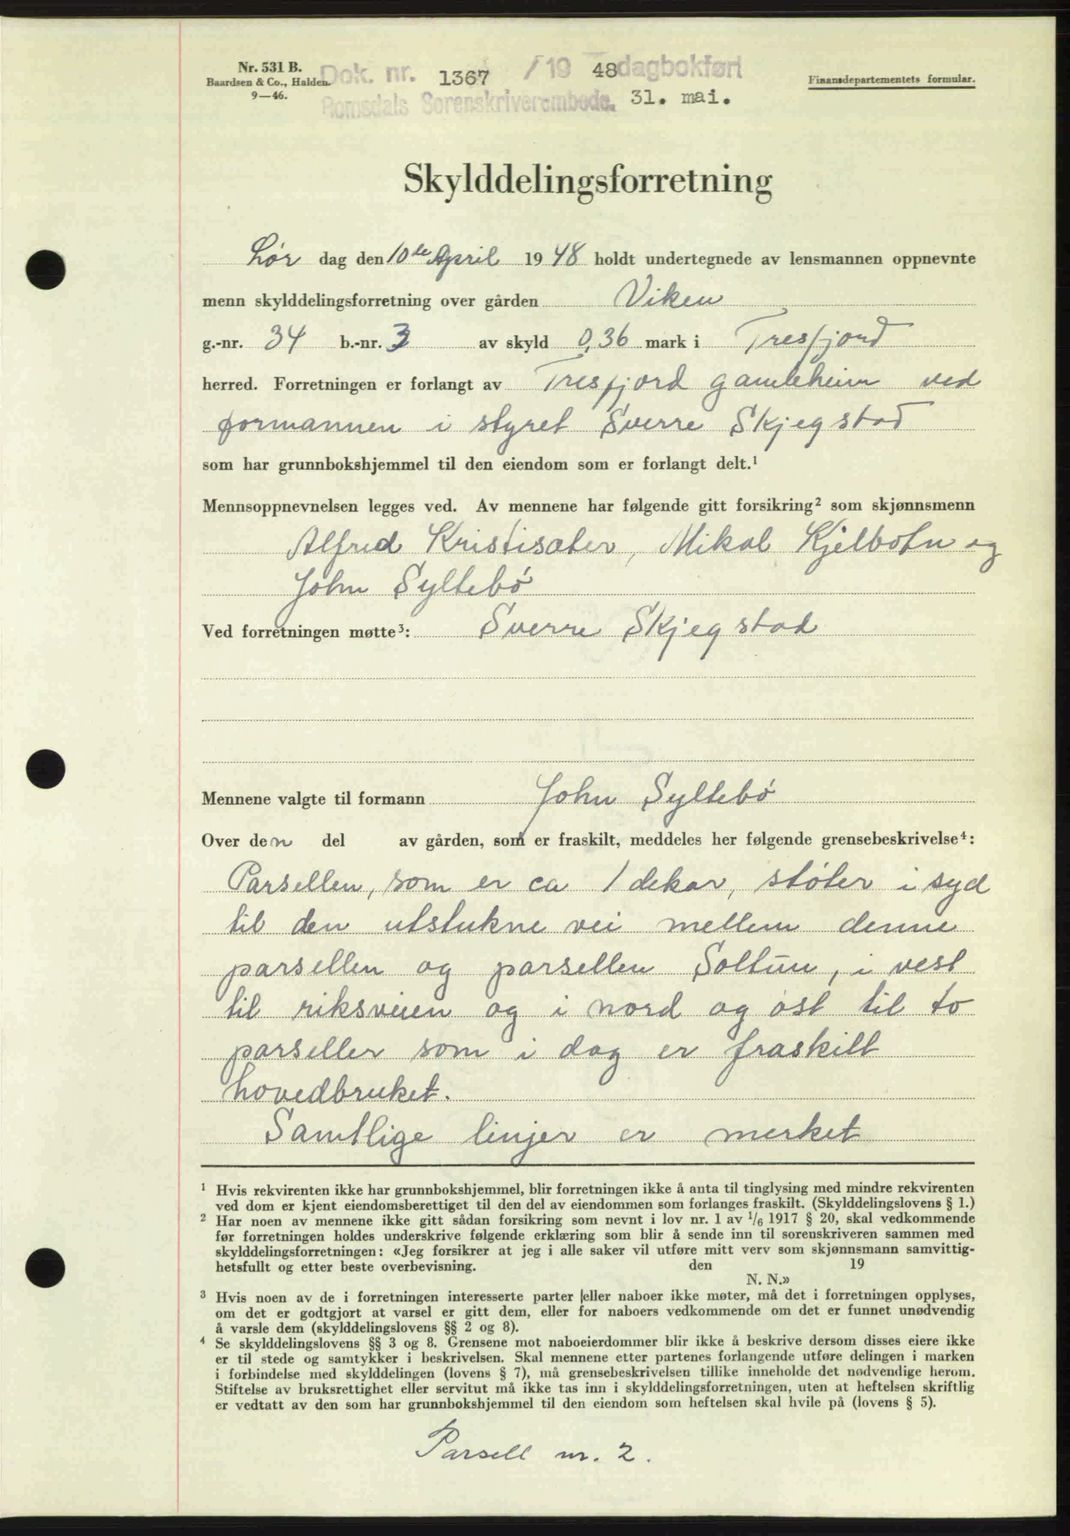 Nr. 531 B.
Baardsen & Co., Halden.
9—46.
Dok. nr. 1367 / 19 48 dagbokført
Romsdals Sorenskriverembede. 31. mai.
Finansdepartementets formular.
Skylddelingsforretning
Lør dag den 10de April 19 48 holdt undertegnede av lensmannen oppnevnte
menn skylddelingsforretning over gården Viken
g.-nr. 34 b.-nr. 3 av skyld 0,36 mark i Tresfjord
herred. Forretningen er forlangt av Tresfjord gamleheim ved
formannen i styret Sverre Skjegstad
som har grunnbokshjemmel til den eiendom som er forlangt delt.¹
Mennsoppnevnelsen legges ved. Av mennene har følgende gitt forsikring² som skjønnsmenn
Alfred Kristisæter, Mikal Kjelbotn og
John Syltebø
Ved forretningen møtte³: Sverre Skjegstad
Mennene valgte til formann John Syltebø
Over den del av gården, som er fraskilt, meddeles her følgende grensebeskrivelse⁴:
Parsellen, som er ca 1 dekar, støter i syd
til den utstukne vei mellem denne
parsellen og parsellen Soltun, i vest
til riksveien og i nord og øst til to
parseller som i dag er fraskilt
hovedbruket.
Samtlige linjer er merket
¹ Hvis rekvirenten ikke har grunnbokshjemmel, blir forretningen ikke å anta til tinglysing med mindre rekvirenten
ved dom er kjent eiendomsberettiget til den del av eiendommen som forlanges fraskilt. (Skylddelingslovens § 1.)
² Har noen av mennene ikke gitt sådan forsikring som nevnt i lov nr. 1 av 1/6 1917 § 20, skal vedkommende
før forretningen holdes underskrive følgende erklæring som blir å sende inn til sorenskriveren sammen med
skylddelingsforretningen: «Jeg forsikrer at jeg i alle saker vil utføre mitt verv som skjønnsmann samvittig-
hetsfullt og etter beste overbevisning. den 19
N. N.»
³ Hvis noen av de i forretningen interesserte parter eller naboer ikke møter, må det i forretningen opplyses,
om det er godtgjort at varsel er gitt dem, eller for naboers vedkommende om det er funnet unødvendig
å varsle dem (skylddelingslovens §§ 2 og 8).
⁴ Se skylddelingslovens §§ 3 og 8. Grensene mot naboeierdommer blir ikke å beskrive dersom disses eiere ikke
er til stede og samtykker i beskrivelsen. Skal mennene etter partenes forlangende utføre delingen i marken
i forbindelse med skylddelingen (lovens § 7), må grensebeskrivelsen tillike inneholde det nødvendige herom.
Stiftelse av bruksrettighet eller servitut må ikke tas inn i skylddelingsforretningen, uten at heftelsen skriftlig
er vedtatt av den som har grunnbokshjemmel til den eiendom som heftelsen skal hvile på (lovens § 5).
Parsell nr. 2.